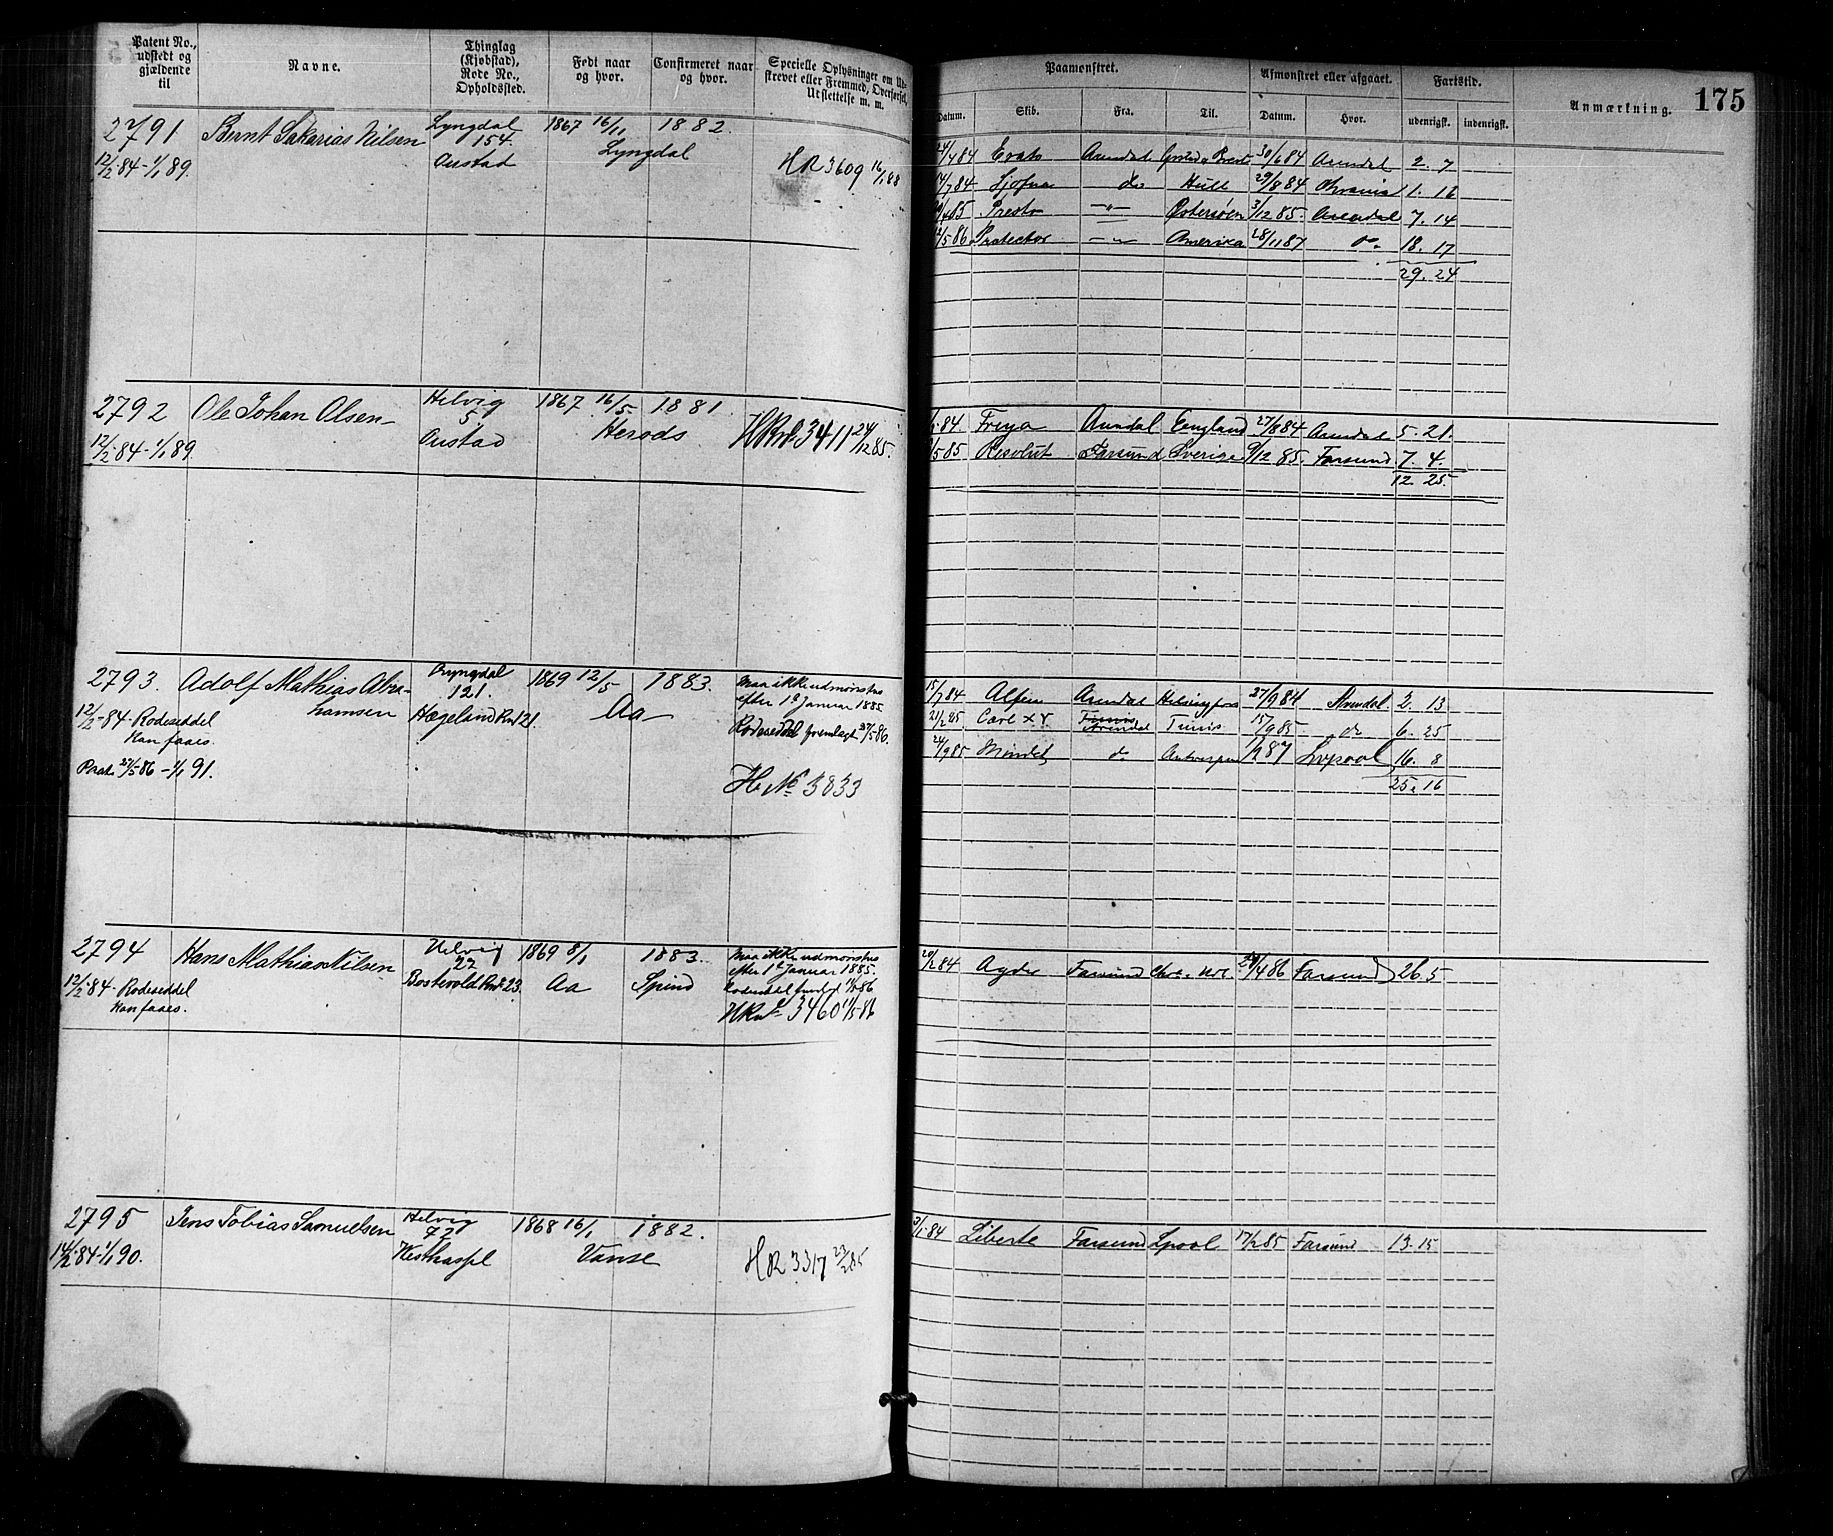 Patent No., udstedt og gjældende til
Navne.
Thinglag (Kjøbstad), Rode No., Opholdssted.
Født naar og hvor.
Confirmeret naar og hvor.
Specielle Oplysninger om Udskrevet eller Fremmed, Overførsel, Udslettelse m. m.
Paamønstret.
Afmønstret eller afgaaet.
Fartstid.
Anmærkning.
175
Datum.
Skib.
Fra.
Til.
Datum.
Hvor.
udenrigsk.
indenrigsk.
2791 Bernt Sakarias Nilsen Lyngdal 1867 16/11 1882.
154
12/2 84-1/1 89. Austad Lyngdal HR 3609 16/1 88
24/4 84 Erato Arendal 30/6 84 Arendal 2. 7
14/7 84 do Hull 29/8 84 1. 16
85 Presto -"- Østersøen 3/12 85. Arendal 7. 14
12/5 86 Protector -"- Amerika 28/11 87 do. 18. 17
29. 24
2792 Ole Johan Olsen Helvig 1867 16/5 1881.
5.
12/2 84-1/1 89 Austad Herods 3411 24/12 85.
84 Freya Arendal England 27/8 84 Arendal 5. 21.
/5 85 Resolut Farsund Sverige 9/12 85. Farsund 7. 4.
12. 25.
2793. Adolf Mathias Abra- 1869 12/5 1883. Maa ikke udmønstres
hamsen 121. efter 1ste Januar 1885
12/2-84 Rodeseddel Hægeland Rno 121. Aa Rodeseddel fremlagt 27/5 86.
Kan faaes.
Pat. 27/5 86 - 1/1 91. HR No 3833
15/7 84 Alfen Arendal Helsingfors 27/9 84 Arendal 2. 13
21/2 85. Carl XV Tunis Arendal Tunis 15/9 85 do 6. 25
24/9 85 do Antwerpen 87 Lvpool 16. 8
25. 16
2794 Hans Mathias Nilsen Helvig 1869 8/1 1883. Maa ikke udmønstres
22 efter 1ste Januar 1885.
12/2-84. Rodeseddel Bostevold Rno 23. Aa Spind Rodeseddel 86
Kan faaes. 3460 1/5 86
20/2 84 Agder Farsund 4 86 Farsund 26. 5
2795 Jens Tobias Samuelsen Helvig 1868 16/1 1882.
72
14/2 84-1/1 90. Vesthassel Vanse HR 3317 23/2 85
84 Liberte Farsund Lpool 17/2 85 Farsund 13. 15